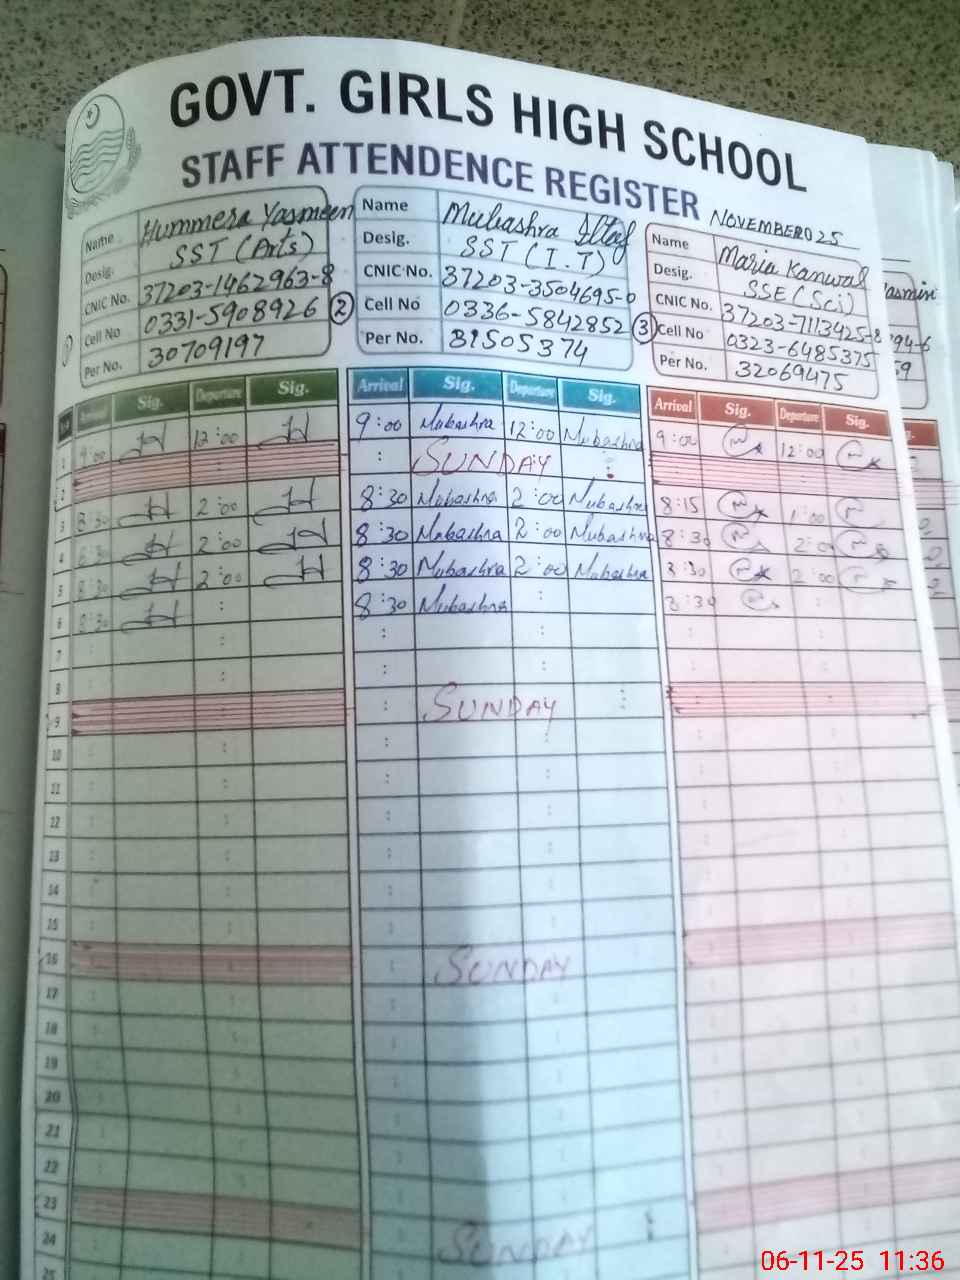 GOVT. GIRLS HIGH SCHOOL
STAFF ATTENDENCE REGISTER
NOVEMBER025
Name Hummera Yasmeen
Desig. SST (Arts)
CNIC No. 37203-1462963-8
Cell No 0331-5908926
Per No. 30709197
2
Name Mubashra Iltaf
Desig. SST (I.T)
CNIC No. 37203-3504695-0
Cell No 0336-5842852
Per No. 31505374
3
Name Maria Kanwal
Desig. SSE (Sci)
CNIC No. 37203-7113425-8
Cell No 0323-6485375
Per No. 32069475
Arrival Sig. Departure Sig. Arrival Sig. Departure Sig. Arrival Sig. Departure Sig.
1 9:00 12:00 9:00 Mubashra 12:00 Mubashra 9:00 12:00
2 : SUNDAY :
3 8:30 2:00 8:30 Mubashra 2:00 Mubashra 8:15 1:00
4 8:30 2:00 8:30 Mubashra 2:00 Mubashra 8:30 2:00
5 8:30 2:00 8:30 Mubashra 2:00 Mubashra 8:30 2:00
6 8:30 8:30 Mubashra : 8:30 :
7
8
9 : SUNDAY :
10
11
12
13
14
15
16 : SUNDAY
17
18
19
20
21
22
23
24 SUNDAY
25
06-11-25 11:36